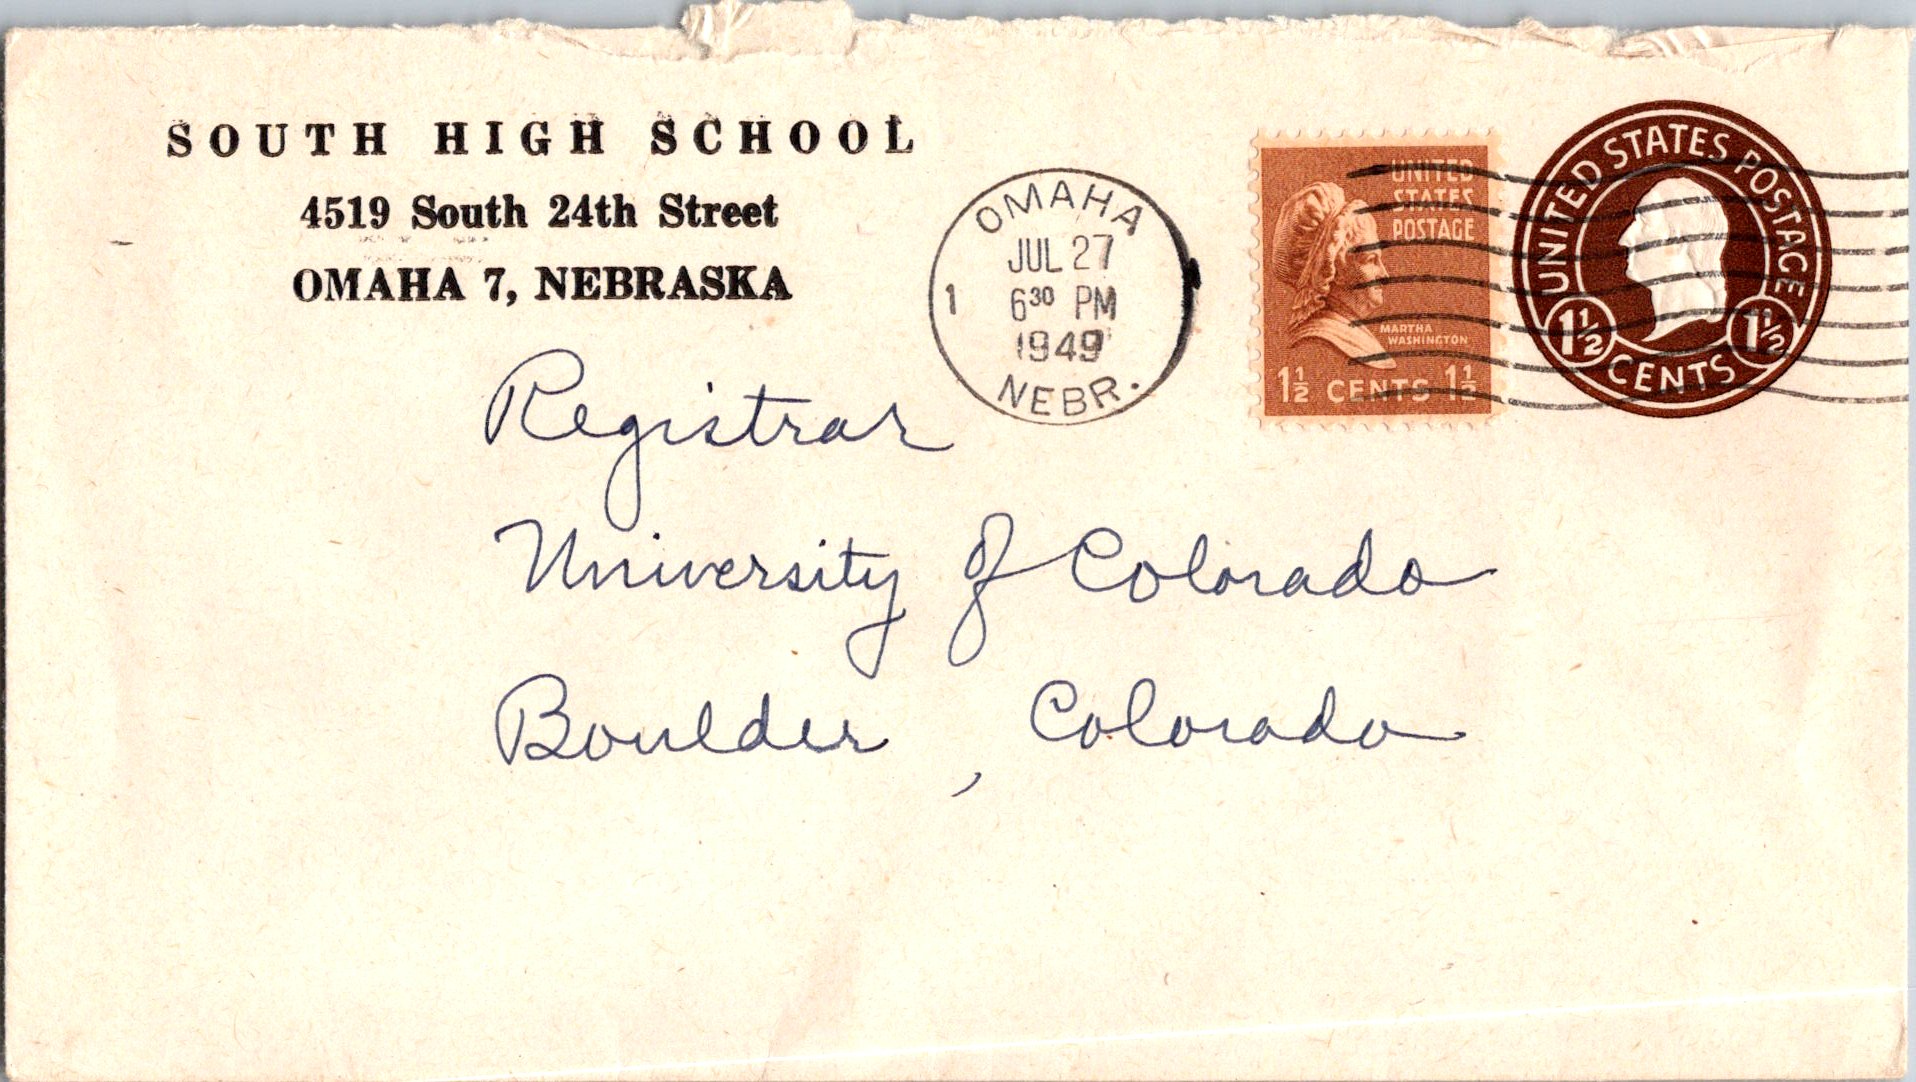 SOUTH HIGH SCHOOL
4519 South 24th Street
OMAHA 7, NEBRASKA
OMAHA
JUL 27
1 6³⁰ PM
1949
NEBR.
UNITED
STATES
POSTAGE
MARTHA
WASHINGTON
1½ CENTS 1½
UNITED STATES POSTAGE
1½ 1½
CENTS
Registrar
University of Colorado
Boulder, Colorado